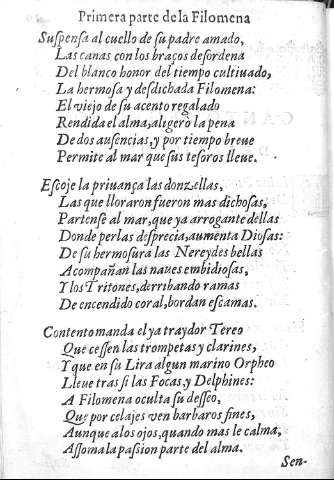 Primera parte de la Filomena
Suspensa al cuello de su padre amado,
Las canas con los braços desordena
Del blanco honor del tiempo cultiuado,
La hermosa y desdichada Filomena:
El viejo de su acento regalado
Rendida el alma, aligerò la pena
De dos ausencias, y por tiempo breue
Permite al mar que sus tesoros lleue.
Escoje la priuança las donzellas,
Las que lloraron fueron mas dichosas,
Partense al mar, que ya arrogante dellas
Donde perlas desprecia, aumenta Diosas:
De su hermosura las Nereydes bellas
Acompañan las naues embidiosas,
Y los Tritones, derribando ramas
De encendido coral, bordan escamas.
Contento manda el ya traydor Tereo
Que cessen las trompetas y clarines,
Y que en su Lira algun marino Orpheo
Lleue tras si las Focas, y Delphines:
A Filomena oculta su desseo,
Que por celajes ven barbaros fines,
Aunque a los ojos, quando mas le calma,
Assoma la passion parte del alma.
Sen-